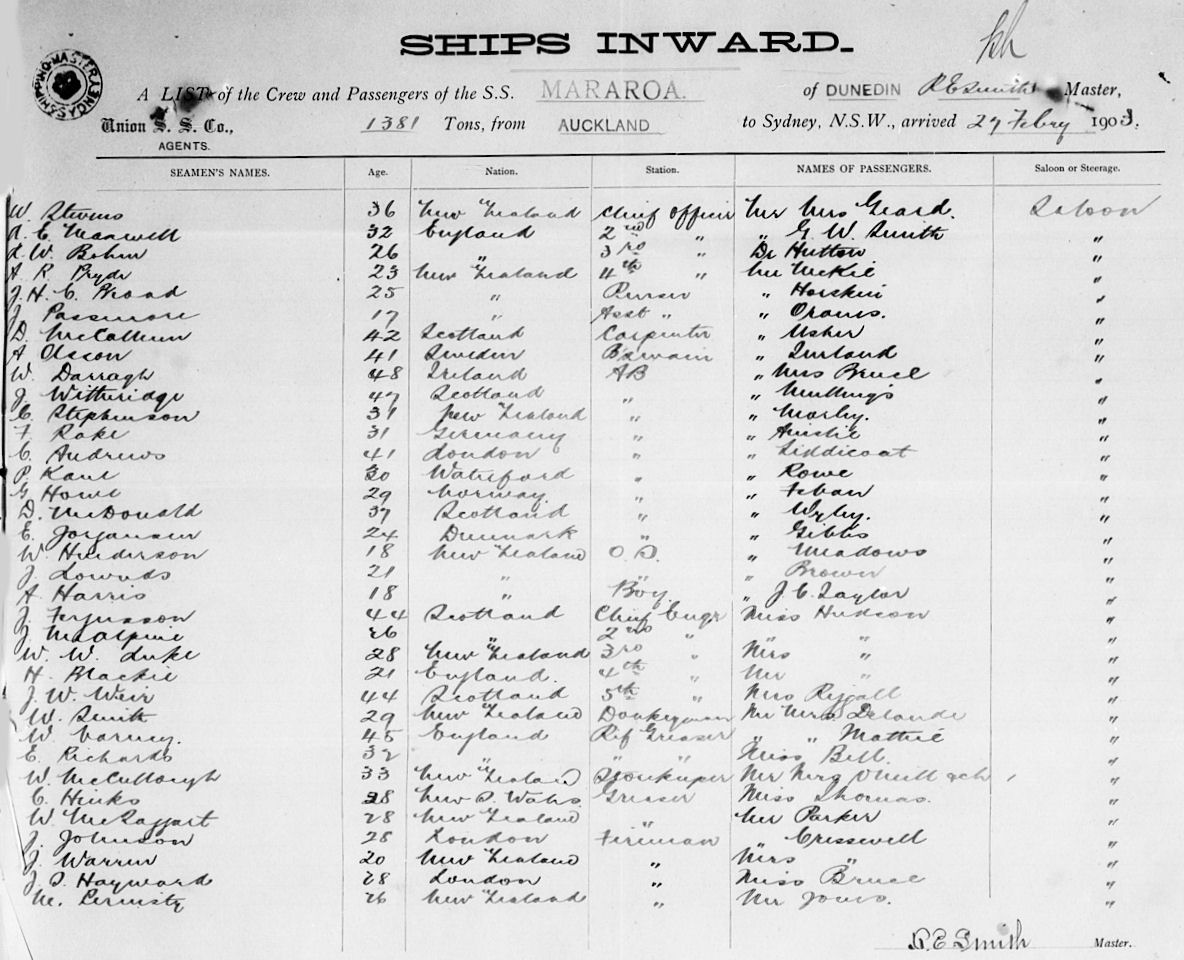 SHIPS INWARD.
A LIST of the Crew and Passengers of the S.S. MARAROA. of DUNEDIN R E Smith Master,
Union S. S. Co., 1381 Tons, from AUCKLAND to Sydney, N.S.W., arrived 27 Febry 1903.
AGENTS.
SEAMEN'S NAMES. Age. Nation. Station. NAMES OF PASSENGERS. Saloon or Steerage.
W. Stevens 36 New Zealand Chief Officer Mr Mrs Geard. Saloon
E. Maxwell 32 England 2nd " " G. W. Smith "
W. Bohm 26 " 3rd " Dr Hutton "
A. R. Pryde 23 New Zealand 4th " Mr McKie "
J. H. C. Broad 25 " Purser " Hoskin "
J. Passmore 17 " Asst " " "
D. McCallum 42 Scotland Carpenter " Usher "
A Olsson 41 Sweden B'swain " Ireland "
W. Darragh 48 Ireland AB " Mrs Bruce "
J. Witheridge 47 Scotland " " Mullings "
C. Stephenson 31 New Zealand " " Morley. "
F. Rake 31 Germany " " Ainslie "
C. Andrews 41 London " " Liddicoat "
P. Kane 30 Waterford " " Rowe "
G. Howe 29 Norway. " " "
D. McDonald 37 Scotland " " Wyly. "
E. Jorgansen 24 Denmark " " Gibbs "
W. Henderson 18 New Zealand O.S. " Meadows "
J. Lownds 21 " " " Brown "
A. Harris 18 " Boy. " J. C. Taylor "
J. Fergusson 44 Scotland Chief Engr Miss Hudson "
J. McAlpine 26 " 2nd " Mrs " "
W. W. Luke 28 New Zealand 3rd " Mr " "
H. Blackie 21 England. 4th "
J. W. Weir 44 Scotland 5th " Mrs Riggall "
W. Smith 29 New Zealand Donkeyman Mr Mrs Delande "
W. Varney. 45 England Ref Greaser " " Mathie "
E. Richards 32 " " " Miss Bell. "
W. McCullough 33 New Zealand Storekeeper Mr Mrs O'Neill & ch "
C. Hinks 28 New S. Wales Greaser Miss Thomas. "
W. McTaggart 28 New Zealand " Mr Parker "
J. Johnson 28 London Fireman " Cresswell "
J. Warren 20 New Zealand " Mrs " "
J. S. Hayward 28 London " Miss Bruce "
M. 26 New Zealand " Mr Jones. "
R. E. Smith Master.